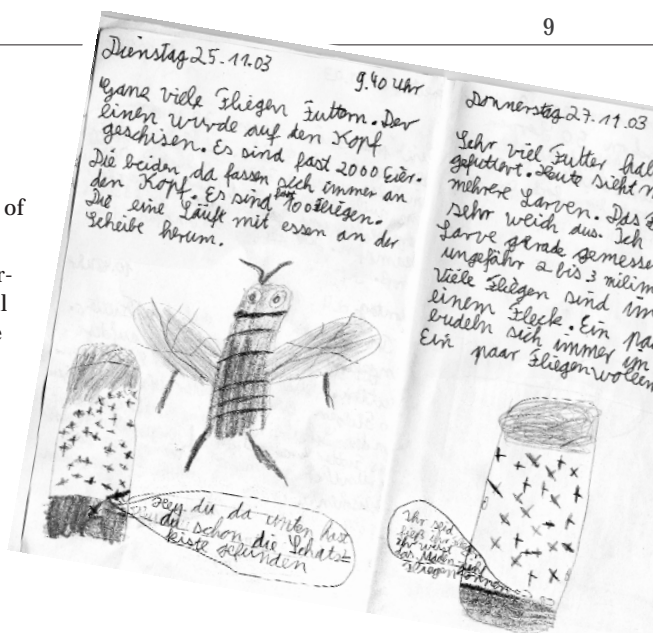 9
of
r-
l
e
Dienstag 25.11.03
9.40 Uhr
Ganz viele Fliegen Futtern. Der
einen wurde auf den Kopf
geschisen. Es sind fast 2000 Eier.
Die beiden, da fassen sich immer an
den Kopf. Es sind 100 Fliegen.
Die eine Läuft mit essen an der
Scheibe herum.
Hey du da unten hast
du schon die Schats=
kiste gefunden
Donnerstag 27.11.03
Sehr viel Futter hab
gefuttert. Heute sieht m
mehrere Larven. Das F
sehr weich aus. Ich
Larve gerade gemessen
ungefähr 2 bis 3 milim
Viele Fliegen sind im
einem Fleck. Ein paa
budeln sich immer im
Ein paar Fliegen wollen
Ihr seid
ihr
Fliegen können